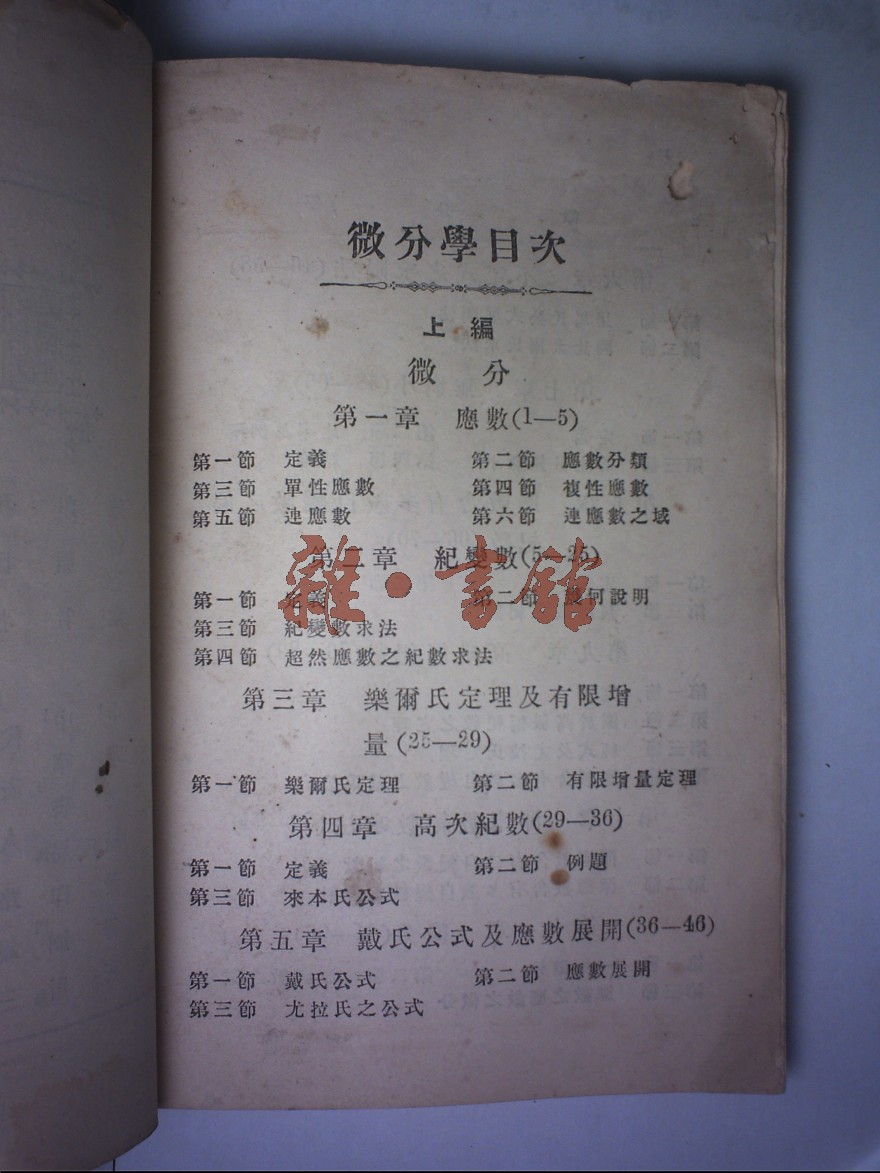 微分學目次
上編
微 分
第一章 應數(1—5)
第一節 定義 第二節 應數分類
第三節 單性應數 第四節 複性應數
第五節 連應數 第六節 連應數之域
第二章 紀變數(5—25)
第一節 定義 第二節 幾何說明
雜·書館
第三節 紀變數求法
第四節 超然應數之紀數求法
第三章 樂爾氏定理及有限增
量(25—29)
第一節 樂爾氏定理 第二節 有限增量定理
第四章 高次紀數(29—36)
第一節 定義 第二節 例題
第三節 來本氏公式
第五章 戴氏公式及應數展開(36—46)
第一節 戴氏公式 第二節 應數展開
第三節 尤拉氏之公式